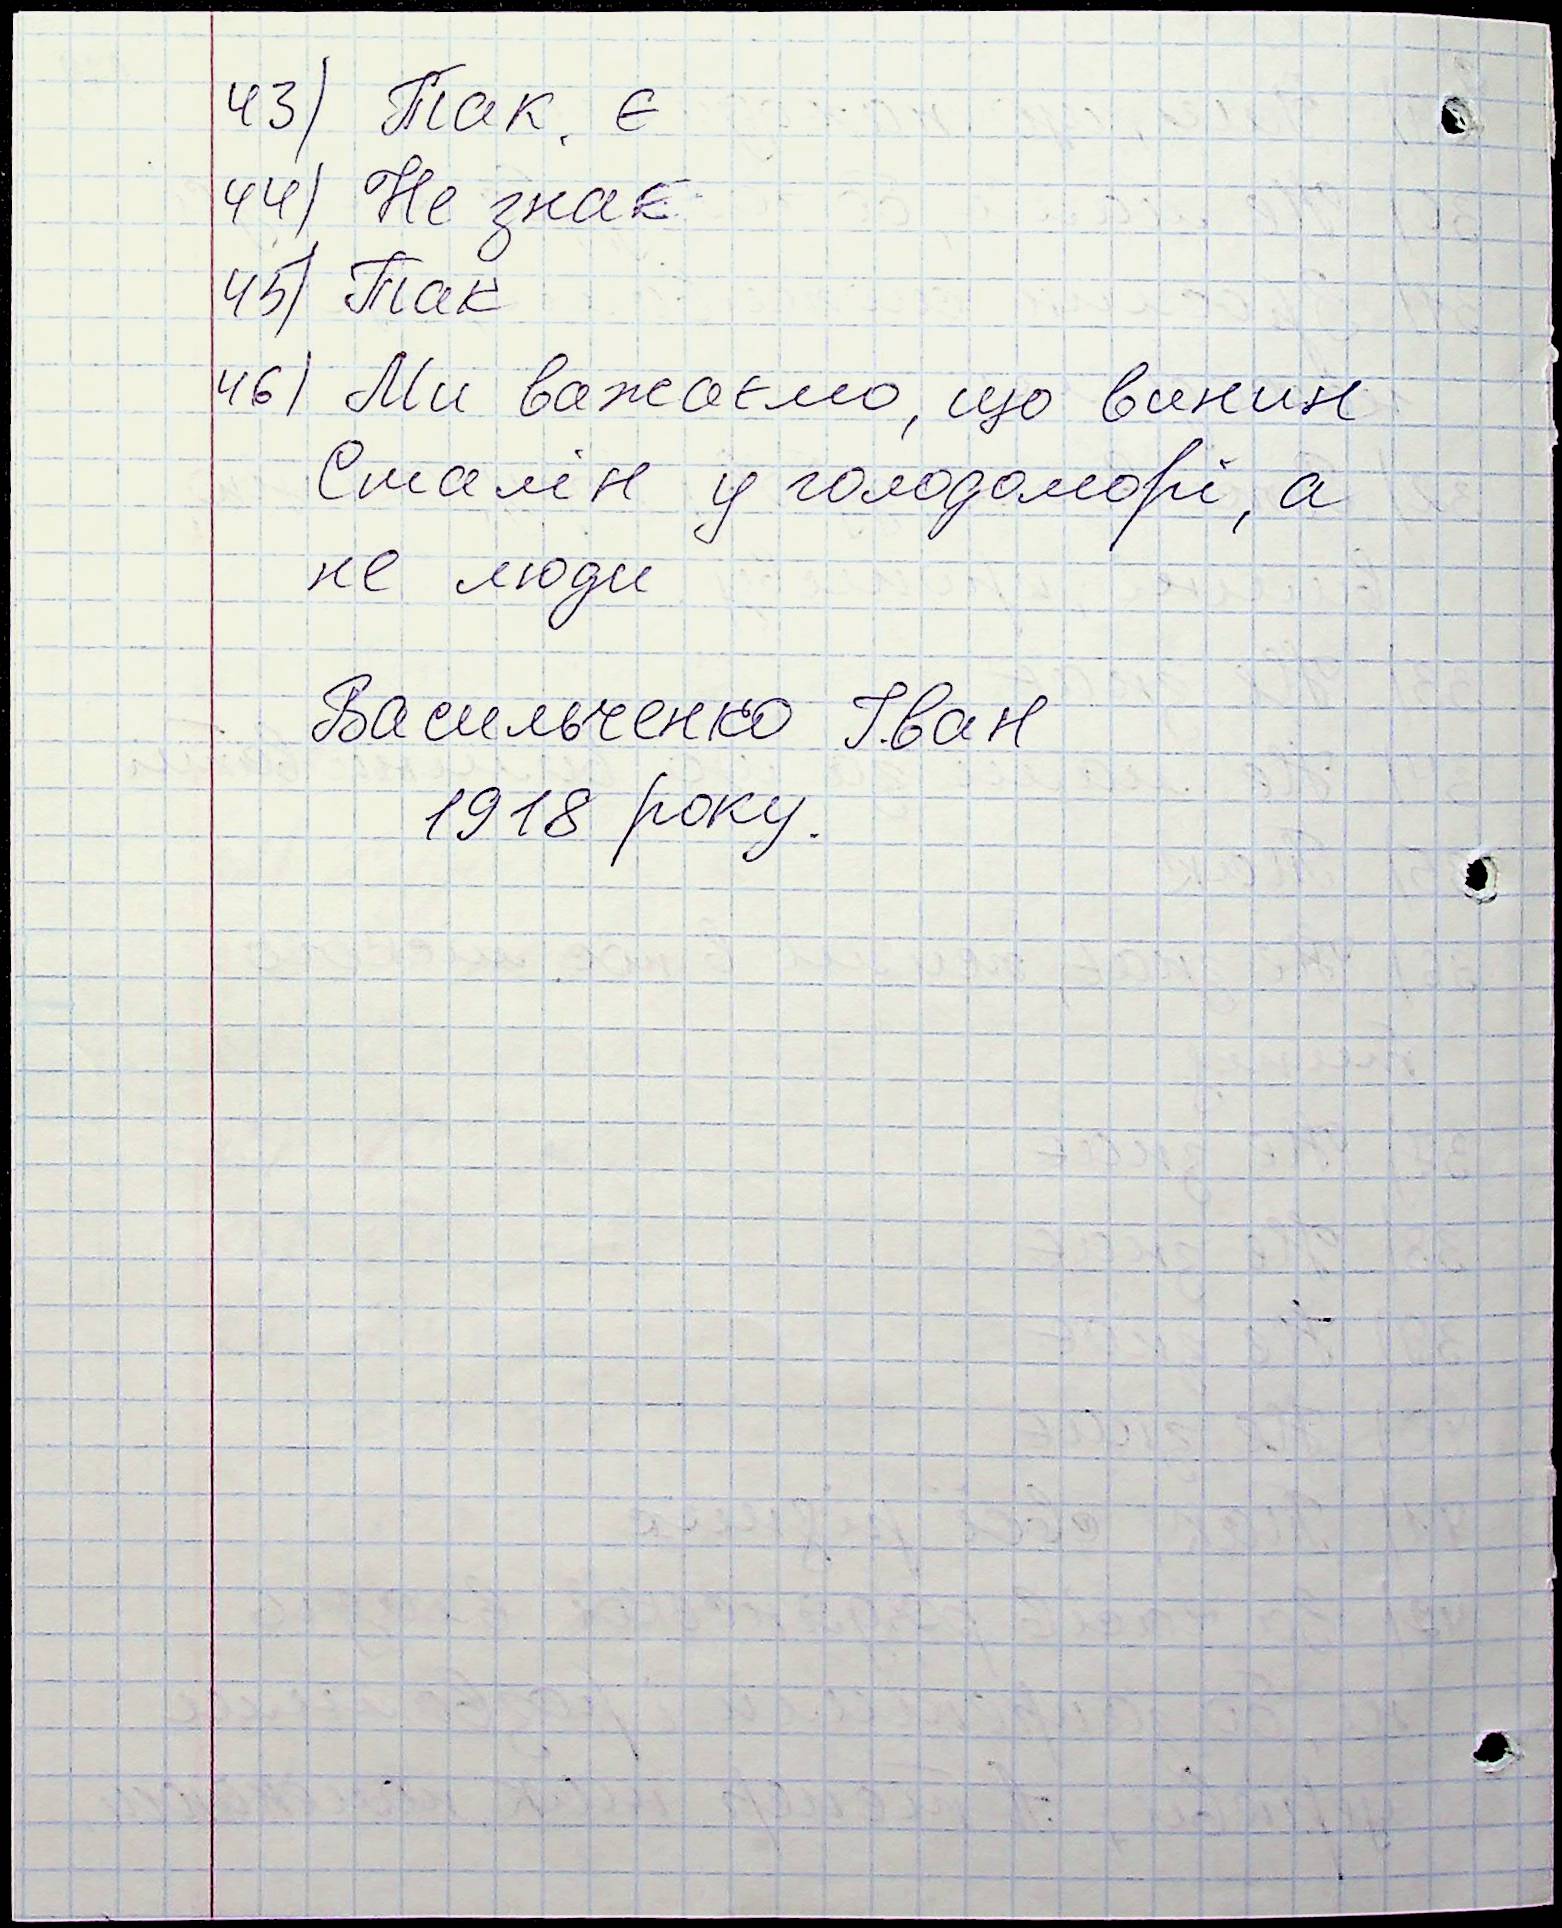 43) Так. є
44) Не знає
45) Так
46) Ми важаємо, що винин
Сталін у голодоморі, а
не люди
Васильченко Іван
1918 року.